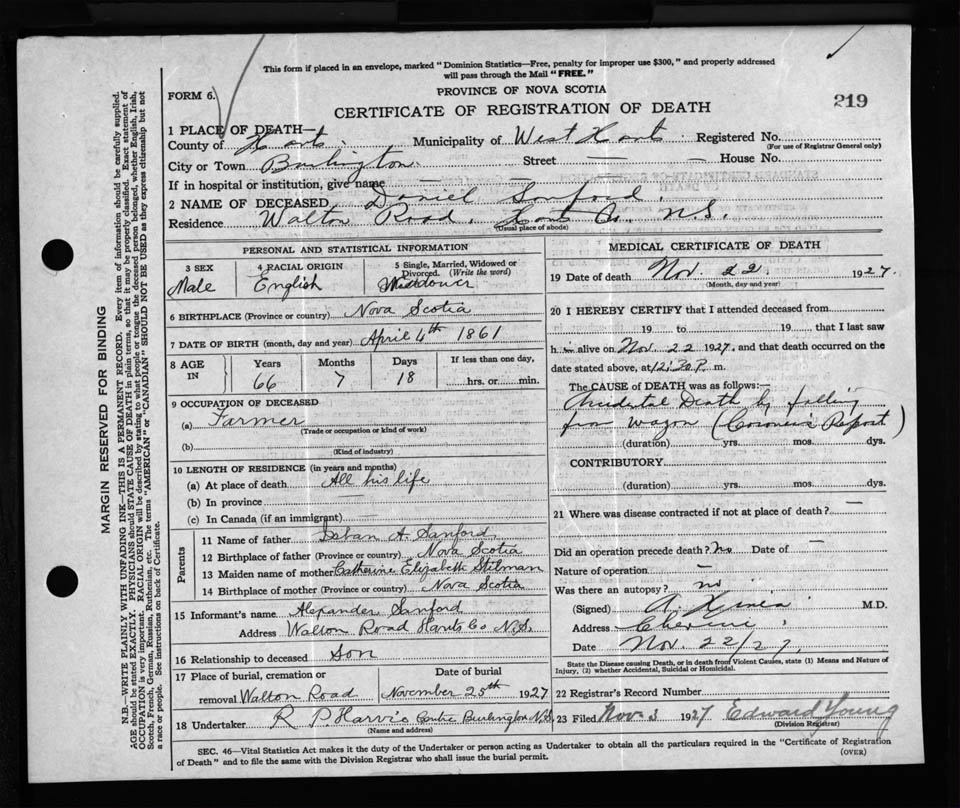 This form if placed in an envelope, marked "Dominion Statistics—Free, penalty for improper use $300," and properly addressed
will pass through the Mail "FREE."
FORM 6.
PROVINCE OF NOVA SCOTIA
CERTIFICATE OF REGISTRATION OF DEATH
219
1 PLACE OF DEATH—
County of Hants Municipality of West Hants Registered No.
(For use of Registrar General only)
City or Town Burlington Street — — House No.
If in hospital or institution, give name — —
2 NAME OF DECEASED Daniel Sanford
Residence Walton Road, Hants Co. N.S.
(Usual place of abode)
PERSONAL AND STATISTICAL INFORMATION
3 SEX Male
4 RACIAL ORIGIN English
5 Single, Married, Widowed or Divorced. (Write the word) Widower
6 BIRTHPLACE (Province or country) Nova Scotia
7 DATE OF BIRTH (month, day and year) April 4th 1861
8 AGE IN Years 66 Months 7 Days 18 If less than one day, hrs. or min.
9 OCCUPATION OF DECEASED
(a) Farmer
(Trade or occupation or kind of work)
(b)
(Kind of industry)
10 LENGTH OF RESIDENCE (in years and months)
(a) At place of death All his life
(b) In province —
(c) In Canada (if an immigrant) —
Parents
11 Name of father A. Sanford
12 Birthplace of father (Province or country) Nova Scotia
13 Maiden name of mother Catherine Elizabeth Stilman
14 Birthplace of mother (Province or country) Nova Scotia
15 Informant's name Alexander Sanford
Address Walton Road Hants Co N.S.
16 Relationship to deceased Son
17 Place of burial, cremation or removal Walton Road
Date of burial November 25th 1927
18 Undertaker R P Harvie Centre Burlington N.S.
(Name and address)
MEDICAL CERTIFICATE OF DEATH
19 Date of death Nov. 22 1927.
(Month, day and year)
20 I HEREBY CERTIFY that I attended deceased from
19 to 19 , that I last saw
h alive on Nov 22 1927, and that death occurred on the
date stated above, at 12:30 P. m.
The CAUSE of DEATH was as follows:—
Accidental Death by falling
from wagon (Coroners Report)
(duration) yrs. mos. dys.
CONTRIBUTORY
(duration) yrs. mos. dys.
21 Where was disease contracted if not at place of death? —
Did an operation precede death? no Date of —
Nature of operation —
Was there an autopsy? no
(Signed) A. M.D.
Address
Date Nov 22/27
State the Disease causing Death, or in death from Violent Causes, state (1) Means and Nature of
Injury, (2) whether Accidental, Suicidal or Homicidal.
22 Registrar's Record Number
23 Filed Nov 3 1927 Edward Young
(Division Registrar)
SEC. 46—Vital Statistics Act makes it the duty of the Undertaker or person acting as Undertaker to obtain all the particulars required in the "Certificate of Registration
of Death" and to file the same with the Division Registrar who shall issue the burial permit.
(OVER)
MARGIN RESERVED FOR BINDING
N.B.—WRITE PLAINLY WITH UNFADING INK—THIS IS A PERMANENT RECORD. Every item of information should be carefully supplied.
AGE should be stated EXACTLY. PHYSICIANS should STATE CAUSE OF DEATH in plain terms, so that it may be properly classified. Exact statement of
OCCUPATION is very important. RACIAL ORIGIN will be described by stating to what people or tongue the deceased person belonged, whether English, Irish,
Scotch, French, German, Russian, Ruthenian, etc. The terms "AMERICAN" or "CANADIAN" SHOULD NOT BE USED as they express citizenship but not
a race or people. See instructions on back of Certificate.